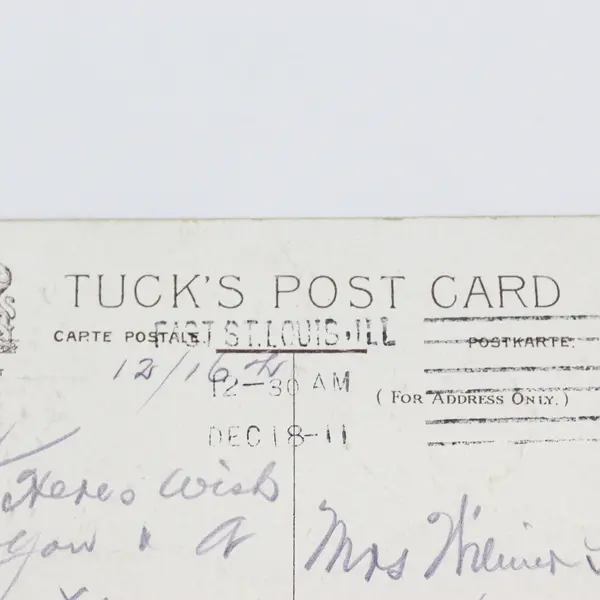 TUCK'S POST CARD
CARTE POSTALE. EAST ST. LOUIS, ILL POSTKARTE.
12/16
12-30 AM
(FOR ADDRESS ONLY.)
DEC 18-11
Heres wish
you
Mrs